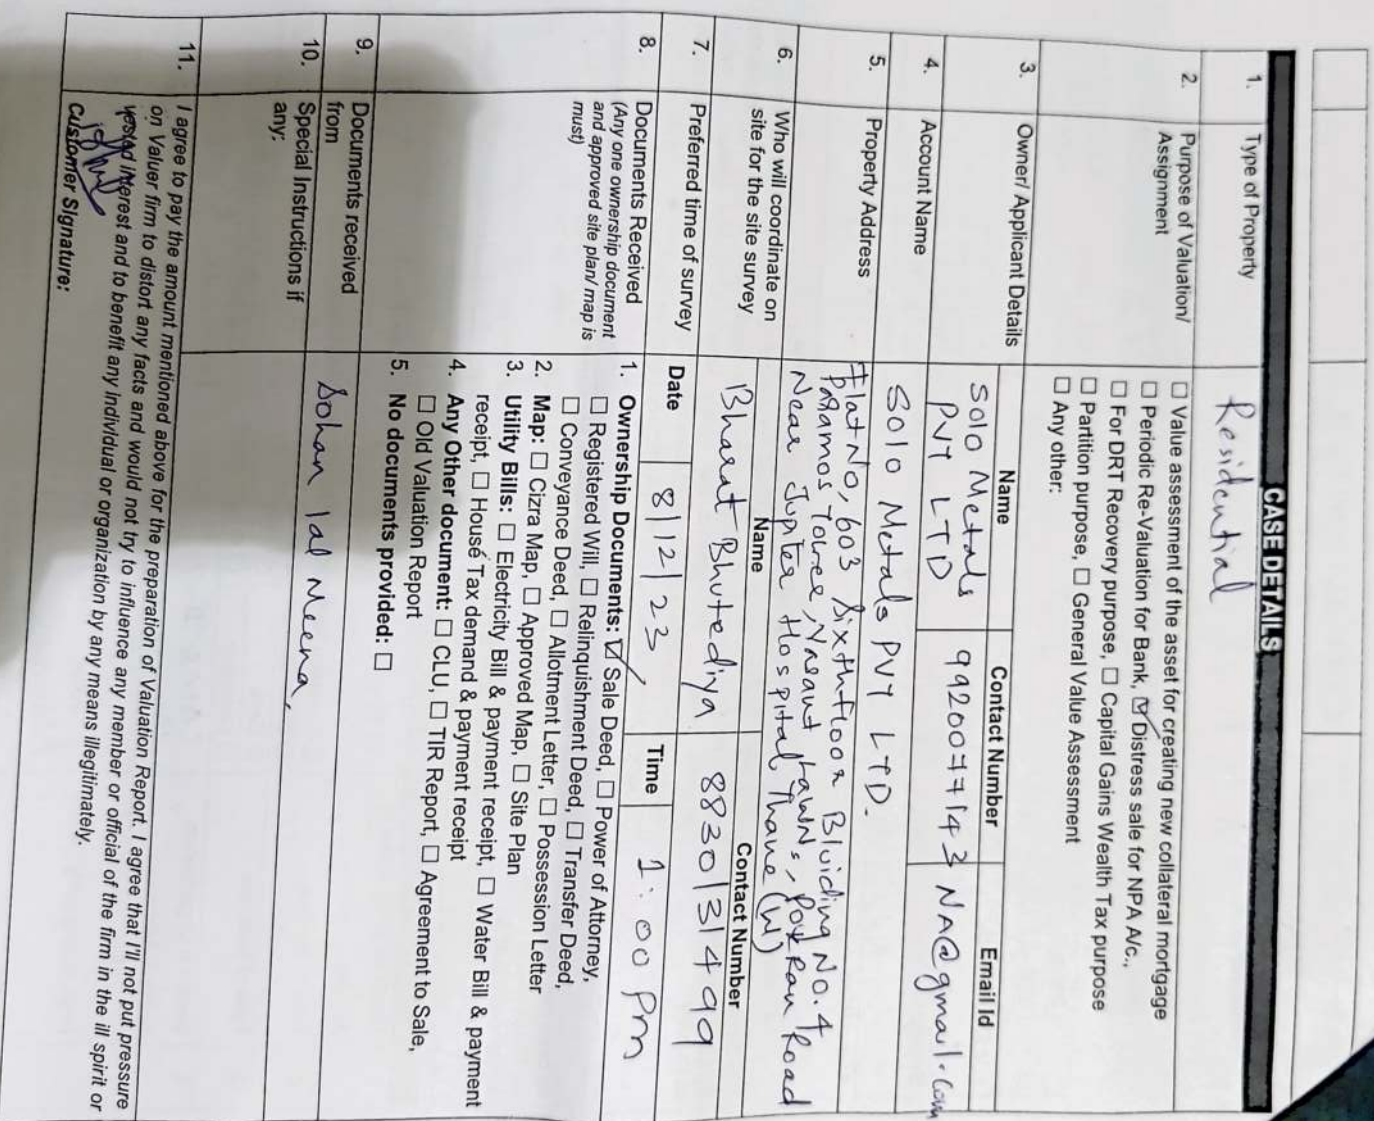 CASE DETAILS
1. Type of Property Residential
2. Purpose of Valuation/ Assignment
☐ Value assessment of the asset for creating new collateral mortgage
☐ Periodic Re-Valuation for Bank, ☑ Distress sale for NPA A/c.,
☐ For DRT Recovery purpose, ☐ Capital Gains Wealth Tax purpose
☐ Partition purpose, ☐ General Value Assessment
☐ Any other:
Name Contact Number Email Id
3. Owner/ Applicant Details
Solo Metals 9920077143 NA@gmail.com
PVT LTD
4. Account Name Solo Metals PVT LTD.
5. Property Address
Flat No, 603 Sixthfloor Bluiding No. 4
Tower, Vneant Lawn's,
Near Jupiter Hospital Thane (W)
6. Who will coordinate on
site for the site survey
Name Contact Number
Bharat Bhutediya 8830131499
7. Preferred time of survey Date 8/12/23 Time 1:00 Pm
8. Documents Received
(Any one ownership document
and approved site plan/ map is
must)
1. Ownership Documents: ☑ Sale Deed, ☐ Power of Attorney,
☐ Registered Will, ☐ Relinquishment Deed, ☐ Transfer Deed,
☐ Conveyance Deed, ☐ Allotment Letter, ☐ Possession Letter
2. Map: ☐ Cizra Map, ☐ Approved Map, ☐ Site Plan
3. Utility Bills: ☐ Electricity Bill & payment receipt, ☐ Water Bill & payment
receipt, ☐ House Tax demand & payment receipt
4. Any Other document: ☐ CLU, ☐ TIR Report, ☐ Agreement to Sale,
☐ Old Valuation Report
5. No documents provided: ☐
9. Documents received
from
Sohan lal Meena,
10. Special Instructions if
any:
11. I agree to pay the amount mentioned above for the preparation of Valuation Report. I agree that I'll not put pressure
on Valuer firm to distort any facts and would not try to influence any member or official of the firm in the ill spirit or
vested interest and to benefit any individual or organization by any means illegitimately.
Customer Signature: